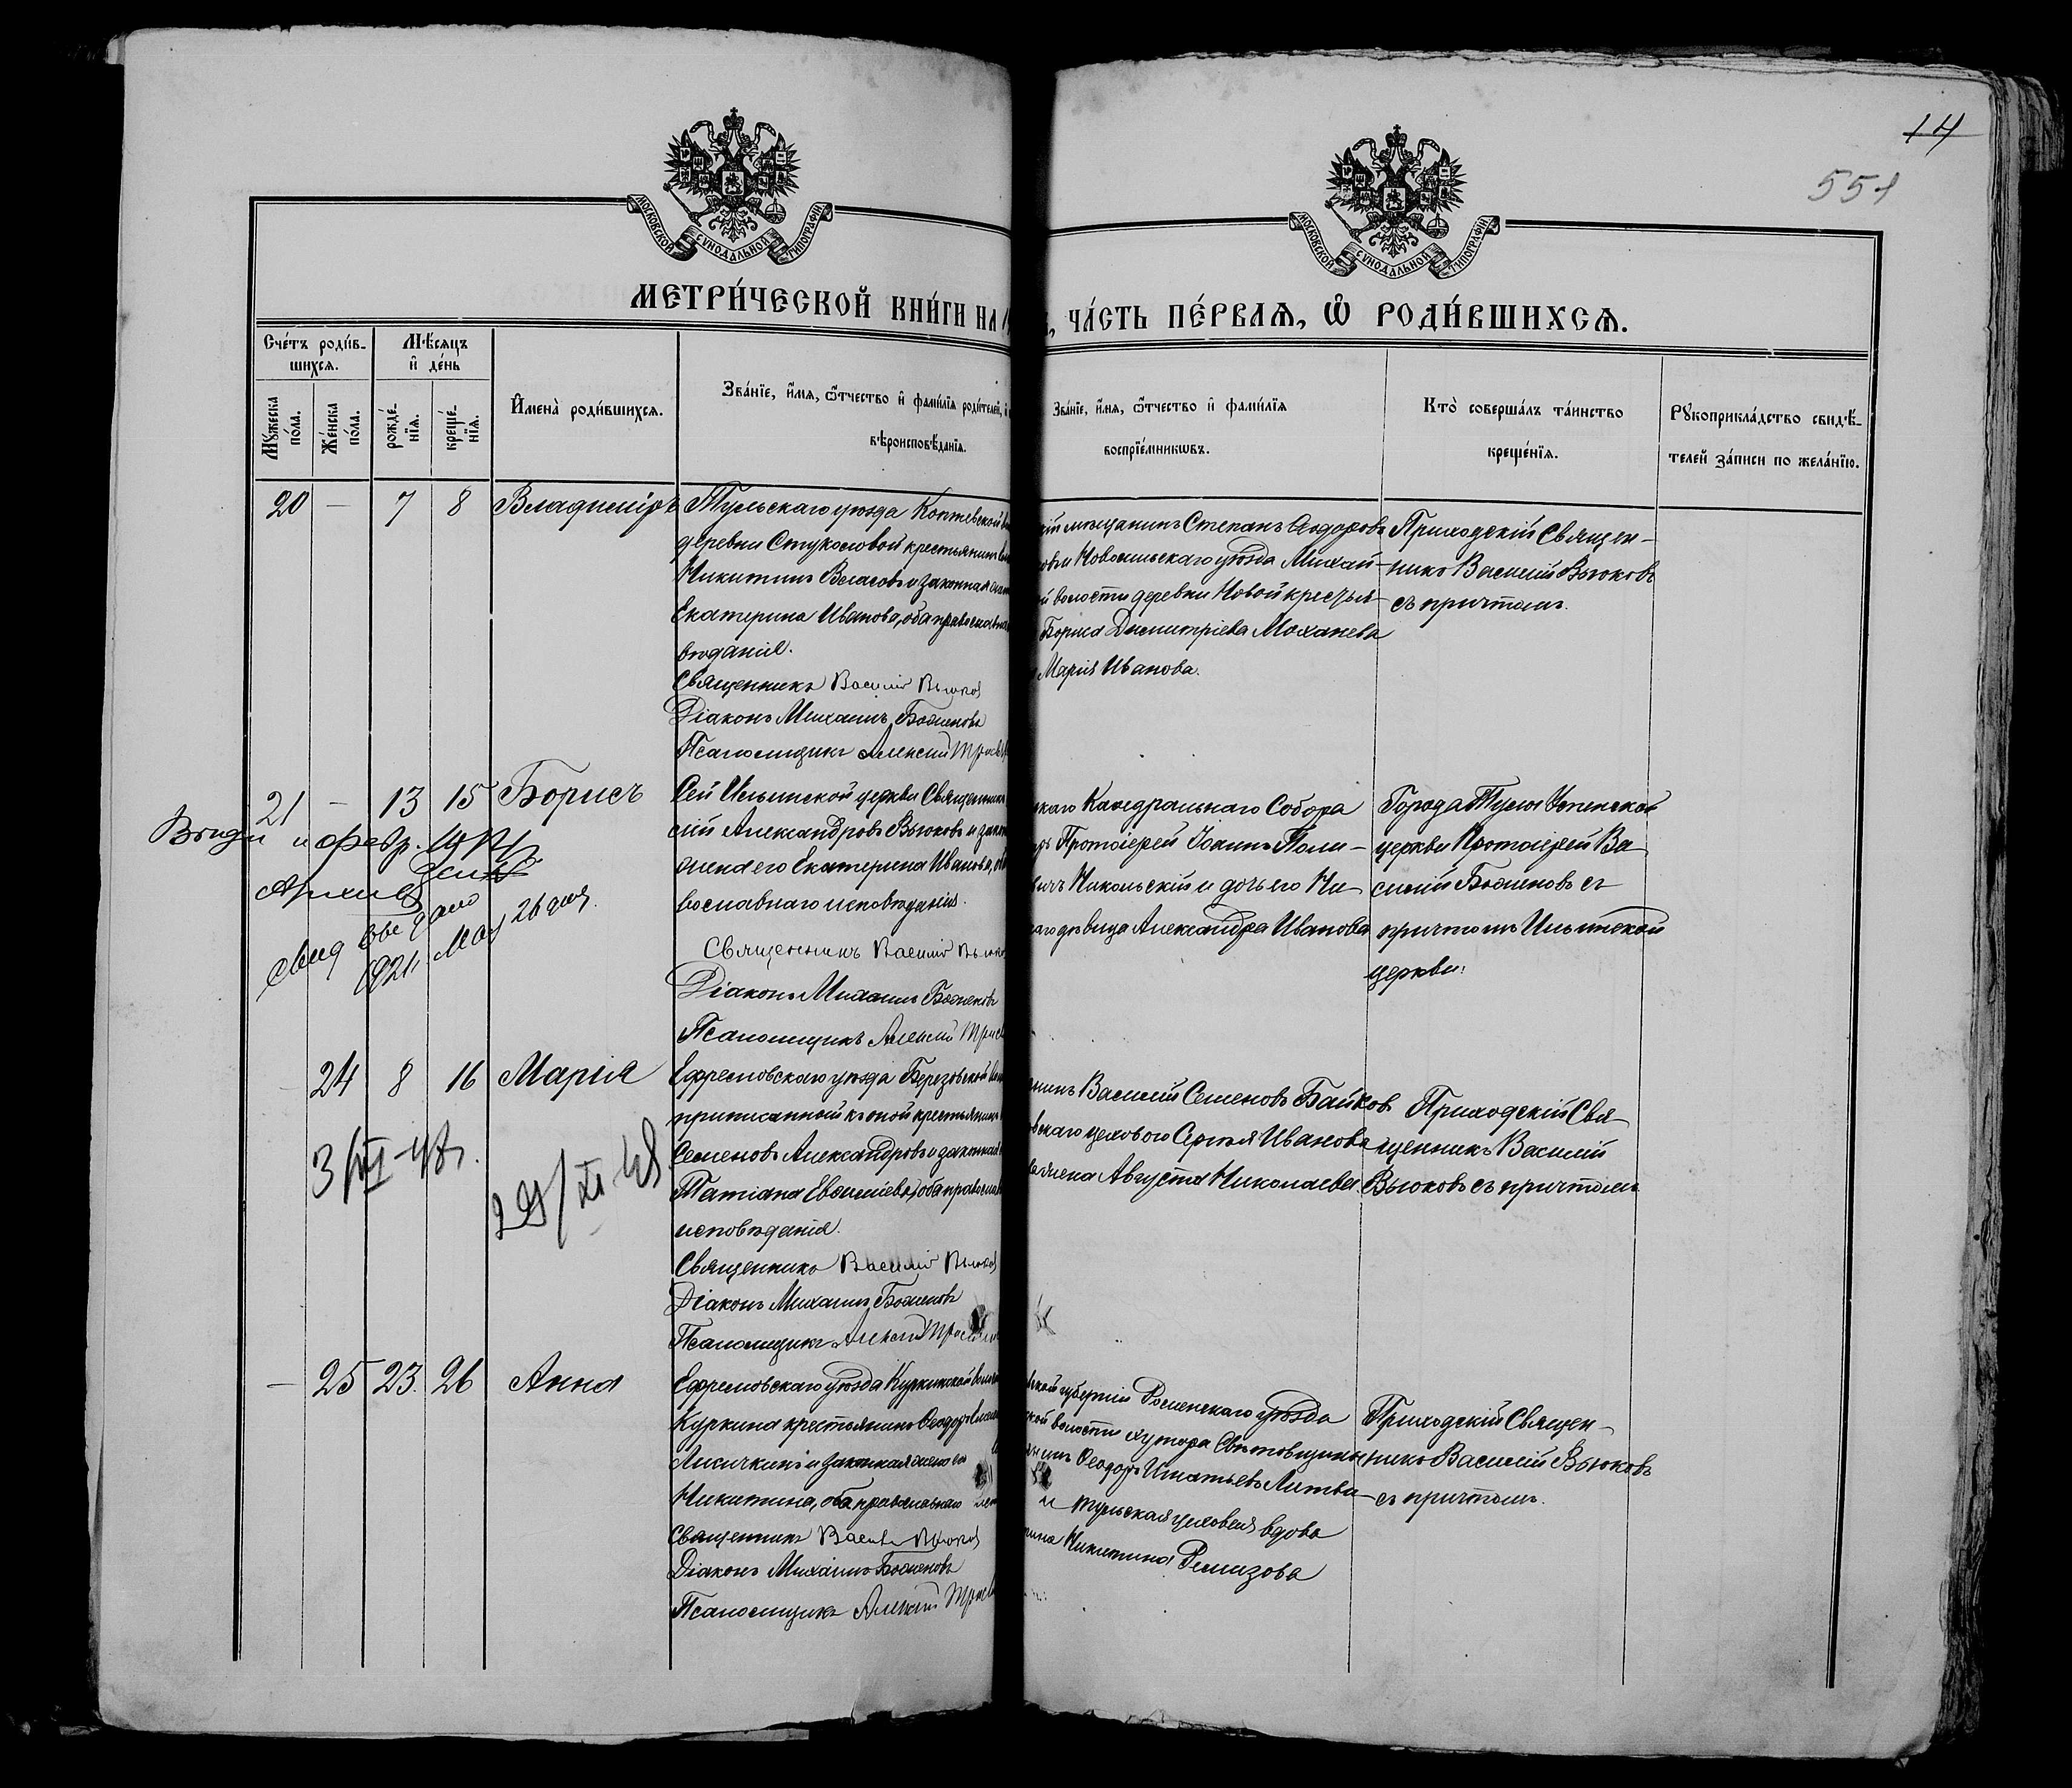 14
551
МОСКОВСКОЙ СѴНОДАЛЬНОЙ ТИПОГРАФІИ
МОСКОВСКОЙ СѴНОДАЛЬНОЙ ТИПОГРАФІИ
МЕТРИ́ЧЕСКОЙ КНИ́ГИ НА
ЧА́СТЬ ПЕ́РВАѦ, Ѽ РОДИ́ВШИХСѦ.
Сче́тъ роди́в-
шихсѧ.
Мѣ́сѧцъ
и҆ де́нь
Мꙋ́жеска
по́ла.
Же́нска
по́ла.
рожде́-
нїѧ.
креще́-
нїѧ.
И҆мена̀ роди́вшихсѧ.
Зва́нїе, и҆́мѧ, ѻ҆́тчество и҆ фами́лїѧ роди́телей,
вѣроисповѣ́данїѧ.
Зва́нїе, и҆́мѧ, ѻ҆́тчество и҆ фами́лїѧ
воспрїе́мникѡвъ.
Кто̀ соверша́лъ та́инство
креще́нїѧ.
Рꙋкоприкла́дство свидѣ́-
телей за́писи по жела́нїю.
20 — 7 8 Владиміръ
Тульскаго уѣзда Коптевской
деревни Стукаловой крестьянинъ
Никитинъ Власовъ и законная
Екатерина Иванова, оба православнаго
вѣданія.
Священникъ Василій Вьюков
Діаконъ Михаилъ Боженовъ
Псаломщикъ Алексій
мѣщанинъ Степанъ Ѳеодоровъ
и Новосильскаго уѣзда Михай-
волости деревни Новой крестья-
Бориса Димитріева Моханева
Марія Иванова.
Приходскій Священ-
никъ Василій Вьюковъ
съ причтомъ.
21 — 13 15 Борисъ
Сей Ильинской церкви Священникъ
Александровъ Вьюковъ и
жена его Екатерина Иванова,
вославнаго исповѣданія.
Священникъ Василій Вьюков
Діаконъ Михаилъ Боженовъ
Псаломщикъ Алексій
Каѳедральнаго Собора
Протоіерей Іоаннъ Поли-
Никольскій и дочь его
дѣвица Александра Иванова
Города Тулы Успенской
церкви Протоіерей Ва-
силій Боженовъ съ
причтомъ Ильинской
церкви.
дано
1921 мая 26 дня.
— 24 8 16 Марія
Ефремовскаго уѣзда Березовской
приписанной къ оной крестьянинъ
Семеновъ Александровъ и законная
Татіана Евѳиміева, оба православнаго
исповѣданія.
Священникъ Василій Вьюков
Діаконъ Михаилъ Боженовъ
Псаломщикъ Алексій
Василій Семеновъ Байков
цеховаго Сергѣя Иванова
жена Августа Николаева
Приходскій Свя-
щенникъ Василій
Вьюковъ съ причтомъ
29/XI 48
— 25 23. 26 Анна
Ефремовскаго уѣзда Куркинской
Куркина крестьянинъ Ѳеодоръ
Лисичкинъ и законная жена его
Никитина, оба православнаго
Священникъ Василій Вьюков
Діаконъ Михаилъ Боженовъ
Псаломщикъ Алексій
губерніи Роменскаго уѣзда
волости хутора
Ѳеодоръ Игнатьевъ Литви-
и тульская цеховая вдова
Никитина Ремизова
Приходскій Священ-
никъ Василій Вьюковъ
съ причтомъ.